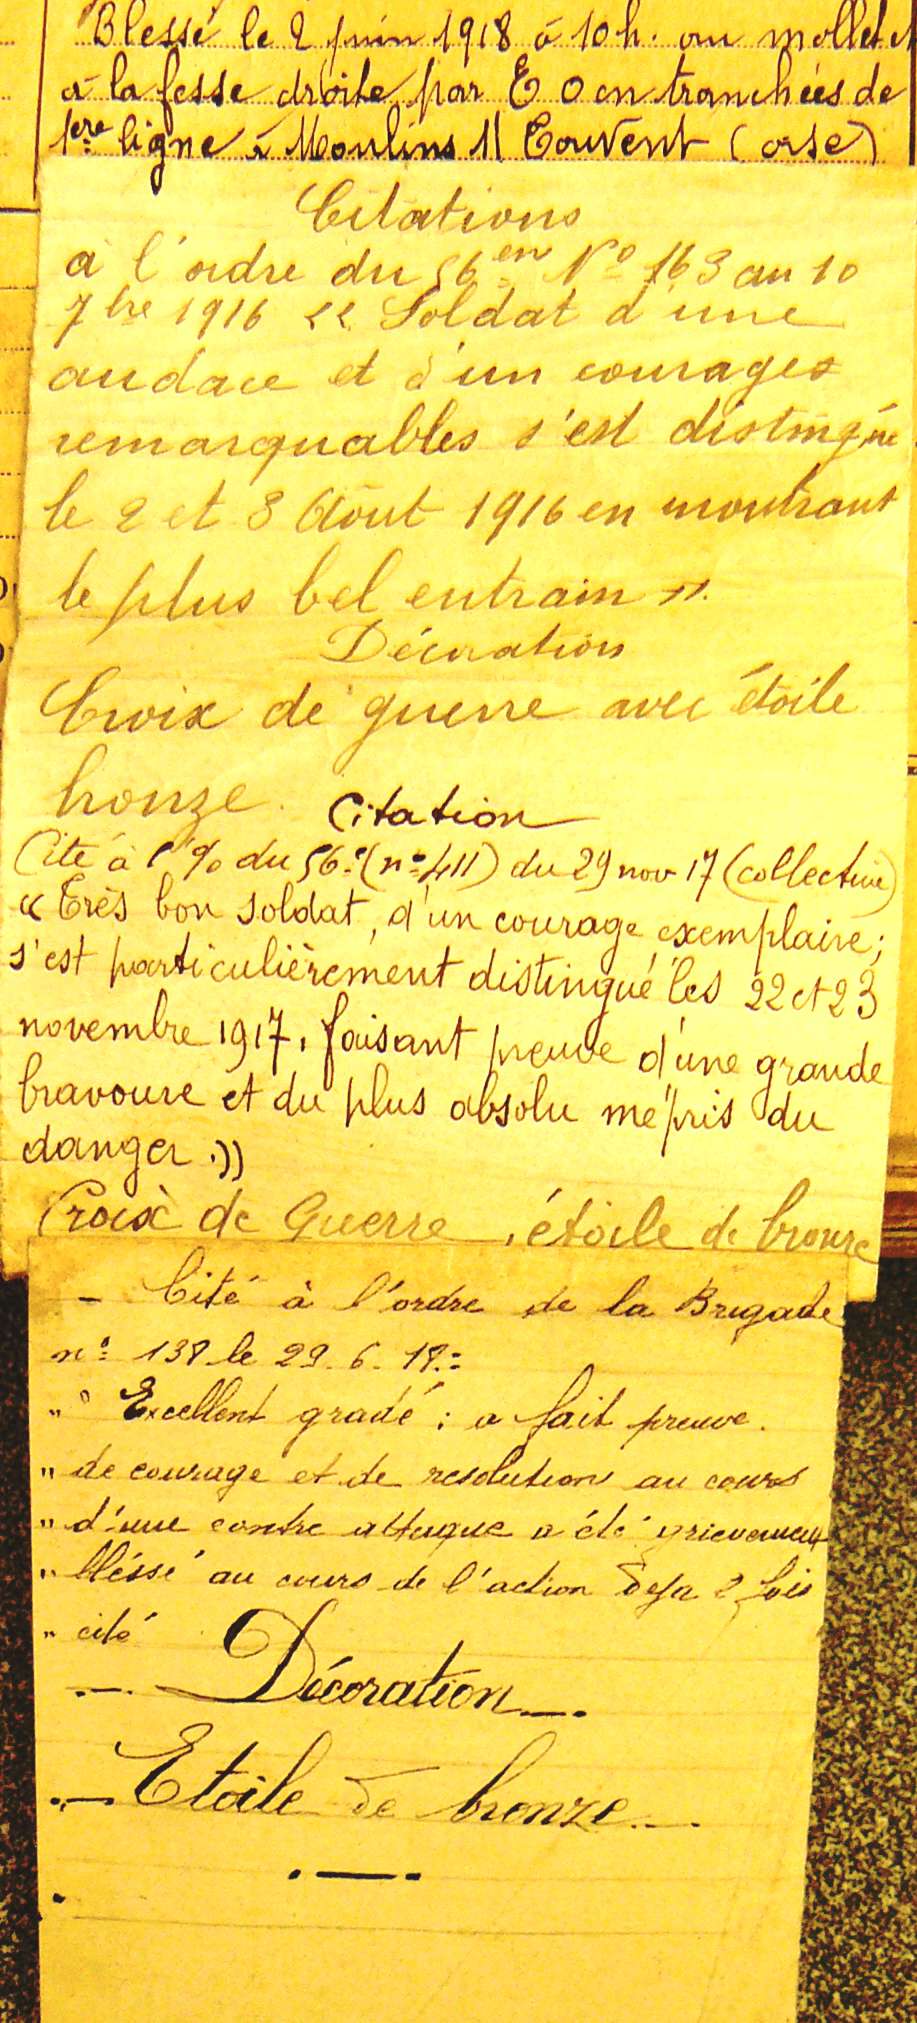 Blessé le 2 juin 1918 à 10h. au mollet et
à la fesse droite par E O en tranchées de
1ère ligne à Moulins /s/ Touvent (oise)
Citations
à l'ordre du 56em No 163 au 10
7bre 1916 << Soldat d'une
audace et d'un courages
remarquables s'est distingué
le 2 et 3 Août 1916 en montrant
le plus bel entrain >>.
Décoration
Croix de guerre avec étoile
bronze.
Citation
Cité à l'% du 56e (no 411) du 29 nov 17 (collective)
« Très bon soldat, d'un courage exemplaire;
s'est particulièrement distingué les 22 et 23
novembre 1917, faisant preuve d'une grande
bravoure et du plus absolu mépris du
danger.))
Croix de Guerre, étoile de bronze
- Cité à l'ordre de la Brigade
no 138 le 29.6.18.=
" Excellent gradé : a fait preuve.
" de courage et de resolution au cours
" d'une contre attaque a été grievement
" bléssé au cours de l'action Deja 2 fois
" cité
Décoration
Etoile de bronze